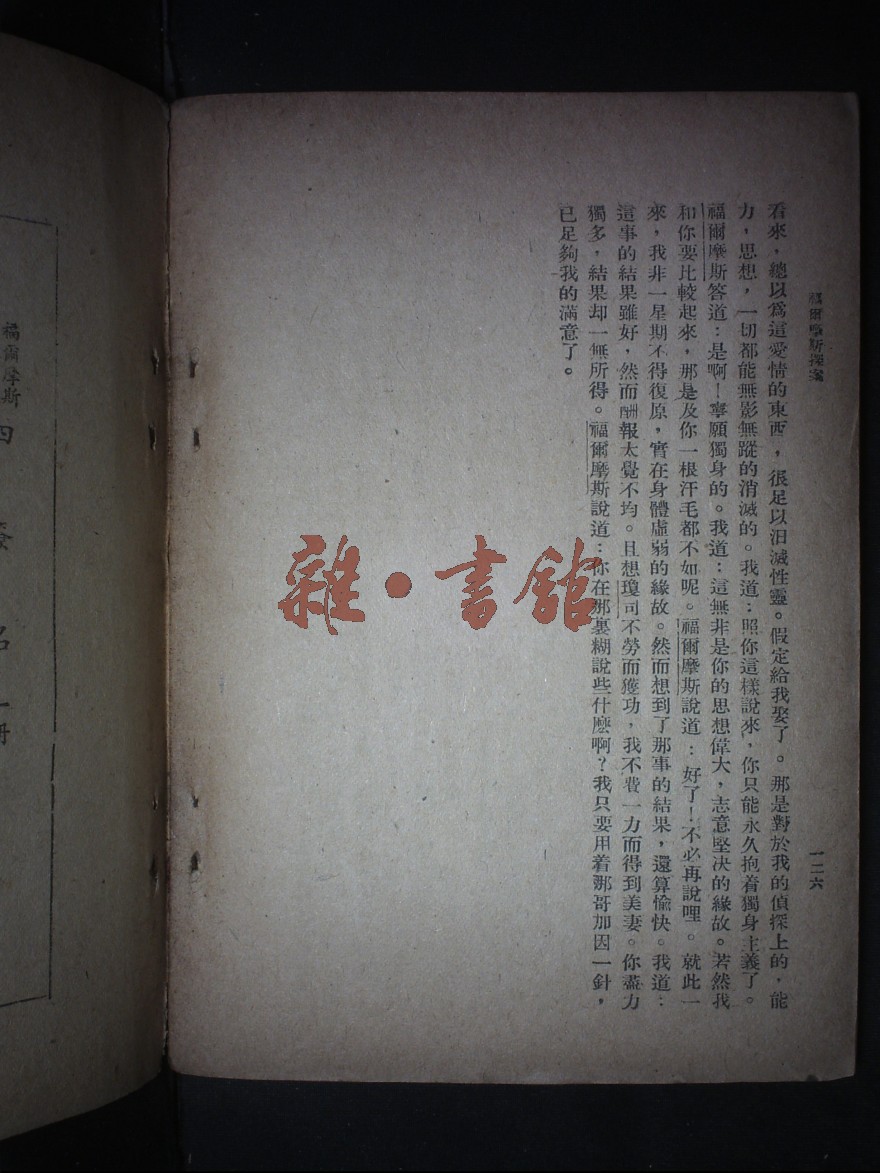 福爾摩斯探案
一二六
看來，總以爲這愛情的東西，很足以汨滅性靈。假定給我娶了。那是對於我的偵探上的，能
力，思想，一切都能無影無蹤的消滅的。我道：照你這樣說來，你只能永久抱着獨身主義了。
福爾摩斯答道：是啊！寧願獨身的。我道：這無非是你的思想偉大，志意堅决的緣故。若然我
和你要比較起來，那是及你一根汗毛都不如呢。福爾摩斯說道：好了！不必再說哩。就此一
來，我非一星期不得復原，實在身體虛弱的緣故。然而想到了那事的結果，還算愉快。我道：
這事的結果雖好，然而酬報太覺不均。且想瓊司不勞而獲功，我不費一力而得到美妻。你盡力
獨多，結果却一無所得。福爾摩斯說道：你在那裏糊說些什麼啊？我只要用着那哥加因一針，
已足夠我的滿意了。
雜·書館
福爾摩斯
四
名
一冊